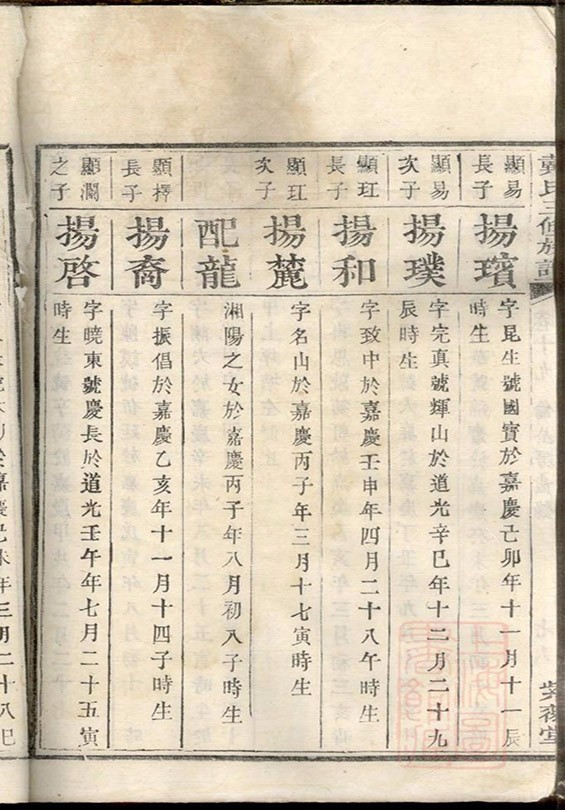 戴氏三修族譜
紫薇堂
顯易
長子
揚璸
字昆生號國賓於嘉慶己卯年十一月十一辰
時生
顯易
次子
揚璞
字完真號輝山於道光辛巳年十二月二十九
辰時生
顯玒
長子
揚和
字致中於嘉慶壬申年四月二十八午時生
顯玒
次子
揚麓
字名山於嘉慶丙子年三月十七寅時生
配龍
湘陽之女於嘉慶丙子年八月初八子時生
顯擇
長子
揚裔
字振倡於嘉慶乙亥年十一月十四子時生
顯瀾
之子
揚啓
字曉東號慶長於道光壬午年七月二十五寅
時生